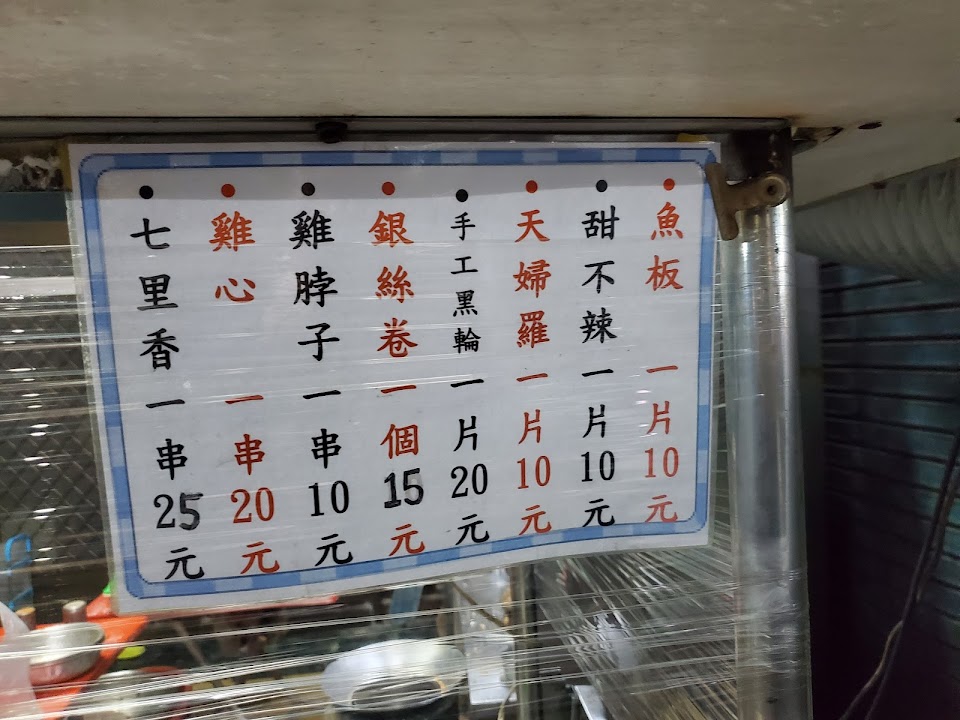 魚板一片10元
甜不辣一片10元
天婦羅一片10元
手工黑輪一片20元
銀絲卷一個15元
雞脖子一串10元
雞心一串20元
七里香一串25元